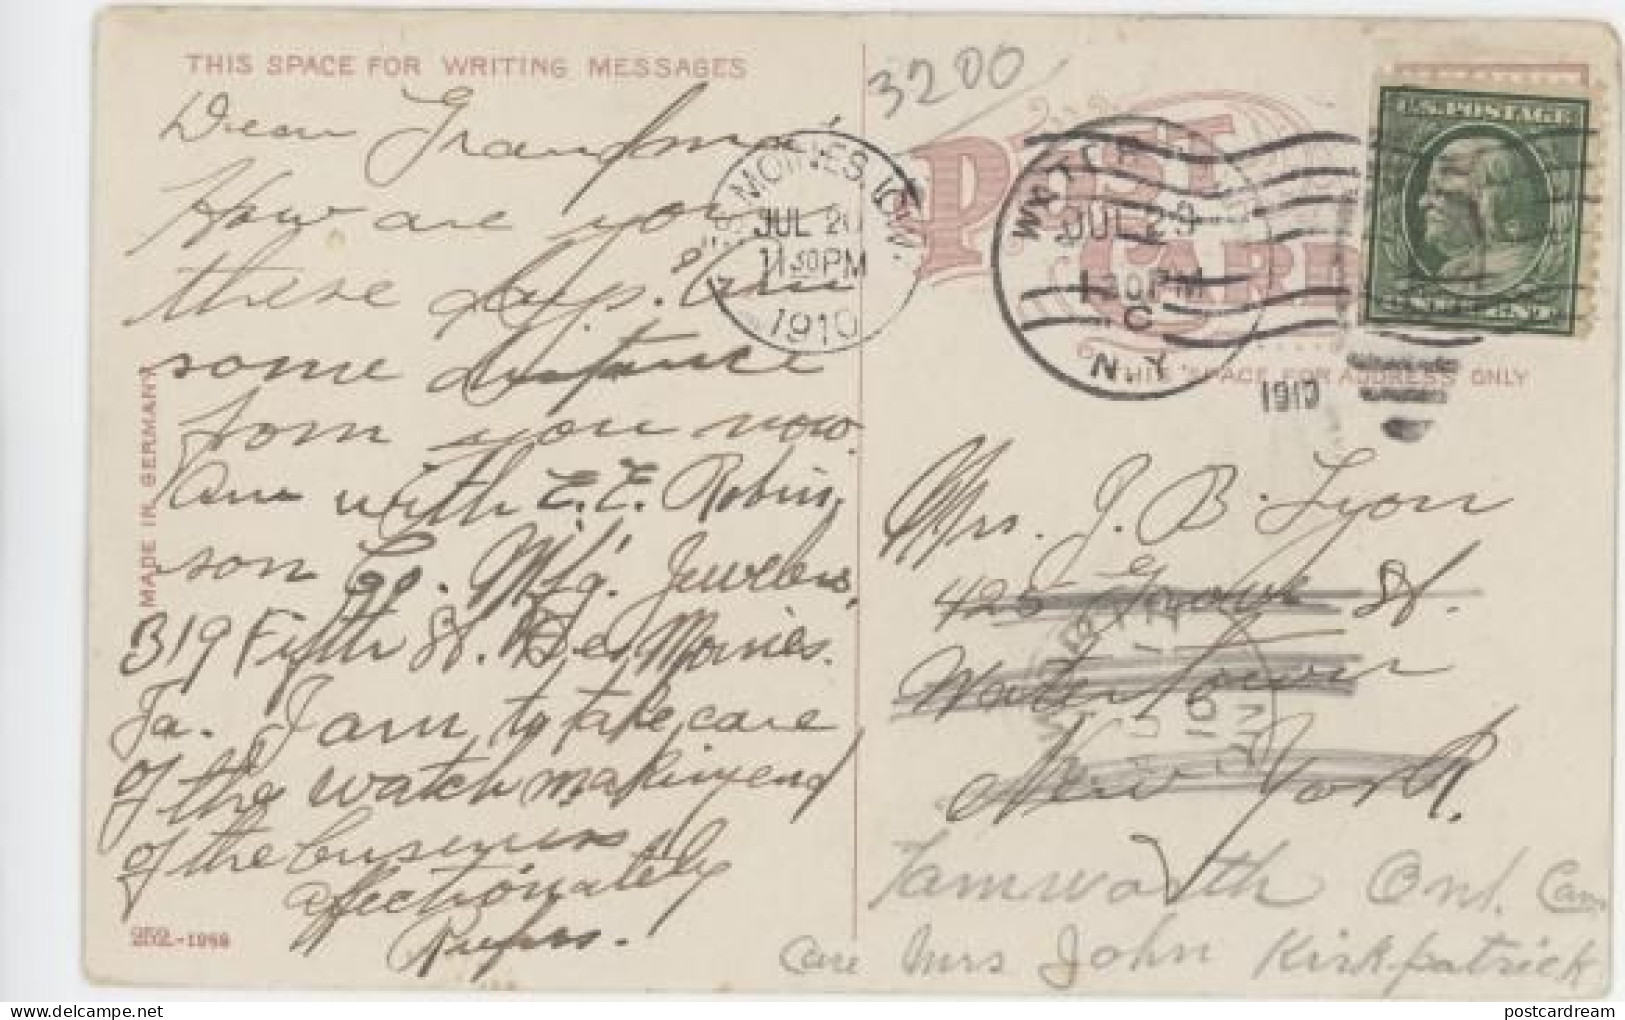 THIS SPACE FOR WRITING MESSAGES
Dear Grandma:
How are you
these days. Am
some distance
from you now.
Am with E. E. Robin,
son Co. M'f'g. Jewelers,
319 Fifth St. Des Moines.
Ia. I am to take care
of the watch making end
of the business
affectionately
Rufus.
MADE IN GERMANY
252.-1988
3200
POST CARD
MOINES, IOWA.
JUL 20
11 30 PM
1910
WATER
JUL 29
1 30 PM
C
N.Y.
1910
U.S. POSTAGE
THIS SPACE FOR ADDRESS ONLY
Mrs. J. B. Lyon
425 Grove St.
Watertown
New York.
Tamworth Ont. Can.
Care Mrs John Kirkpatrick
postcardream